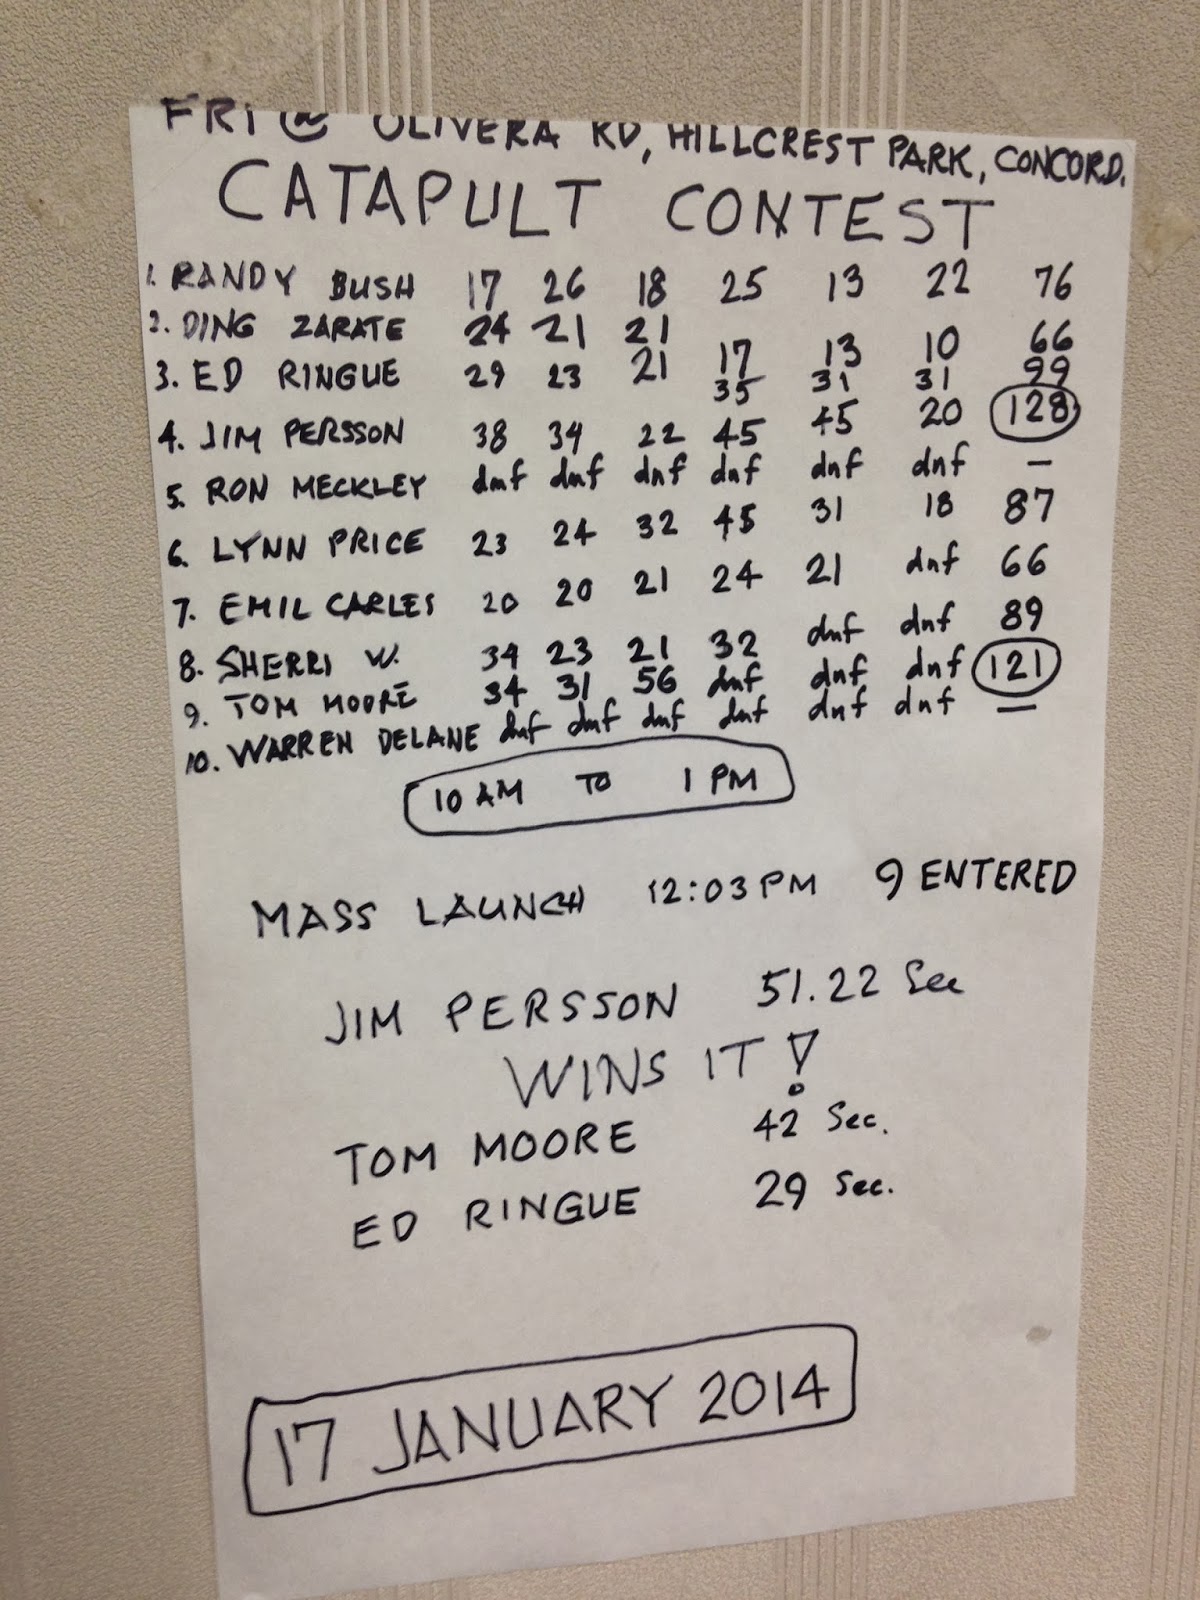 FRI @ OLIVERA RD, HILLCREST PARK, CONCORD.
CATAPULT CONTEST
1. RANDY BUSH 17 26 18 25 13 22 76
2. DING ZARATE 24 21 21 17 13 10 66
3. ED RINGUE 29 23 21 35 31 31 99
4. JIM PERSSON 38 34 22 45 45 20 128
5. RON MECKLEY dnf dnf dnf dnf dnf dnf —
6. LYNN PRICE 23 24 32 45 31 18 87
7. EMIL CARLES 20 20 21 24 21 dnf 66
8. SHERRI W. 34 23 21 32 dnf dnf 89
9. TOM MOORE 34 31 56 dnf dnf dnf 121
10. WARREN DELANE dnf dnf dnf dnf dnf dnf —
10 AM TO 1 PM
MASS LAUNCH 12:03 PM 9 ENTERED
JIM PERSSON 51.22 Sec
WINS IT!
TOM MOORE 42 Sec.
ED RINGUE 29 Sec.
17 JANUARY 2014